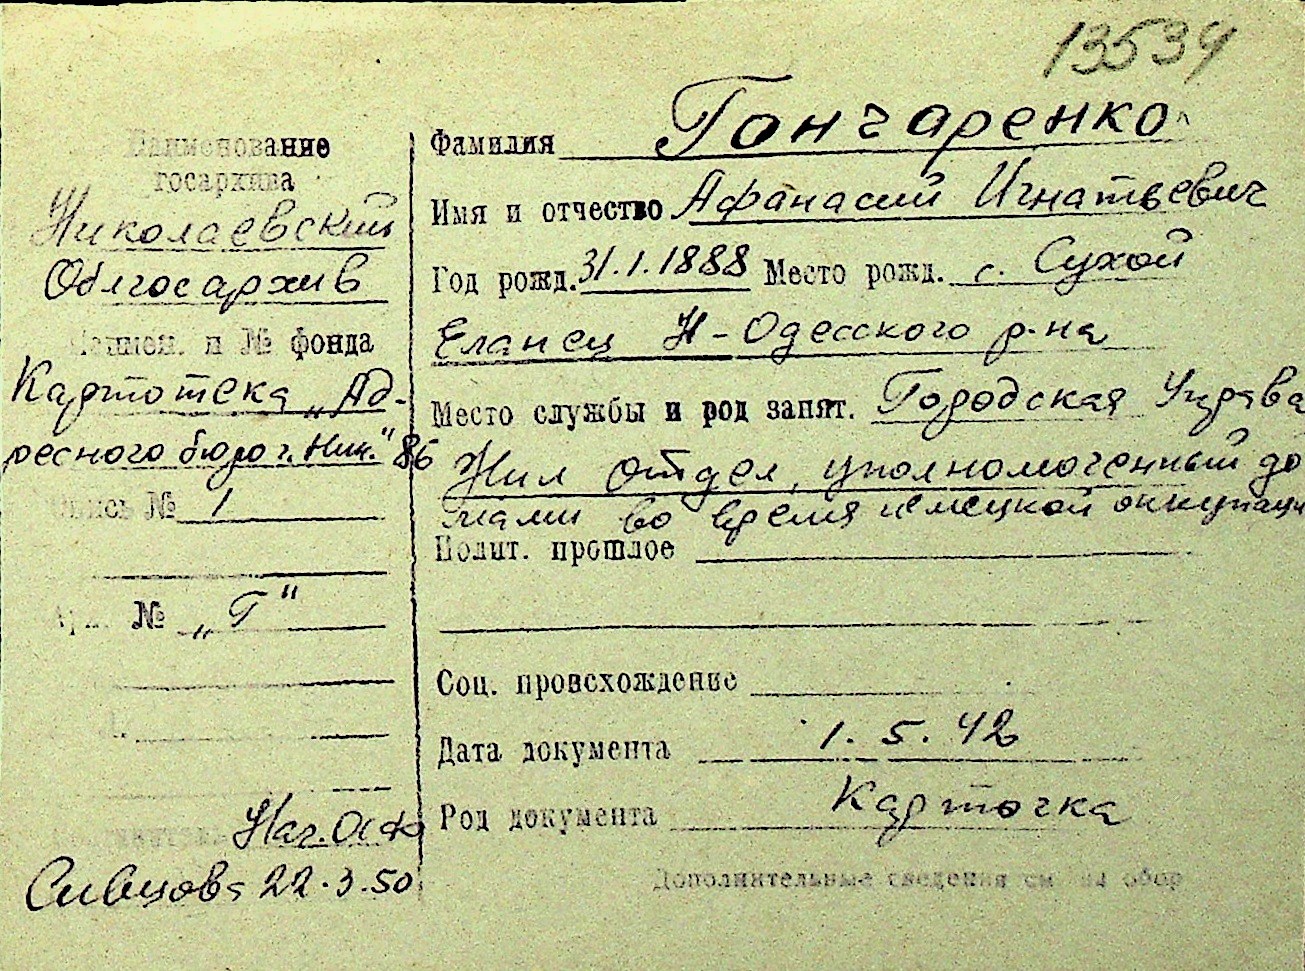 13534
Наименование
госархива
Николаевский
Облгосархив
Наимен. и № фонда
Картотека „Ад-
ресного бюро г. Ник." 86
Опись № 1
Арх. № „Г"
Нач. ОСФ
Сивцова 22.3.50
Фамилия Гончаренко
Имя и отчество Афанасий Игнатьевич
Год рожд. 31.1.1888 Место рожд. с. Сухой
Еланец Н-Одесского р-на
Место службы и род занят. Городская Управа
Жил отдел, уполномоченный до
мами во время немецкой оккупаци
Полит. прошлое
Соц. происхождение
Дата документа 1.5.42
Род документа Карточка
Дополнительные сведения см на обор